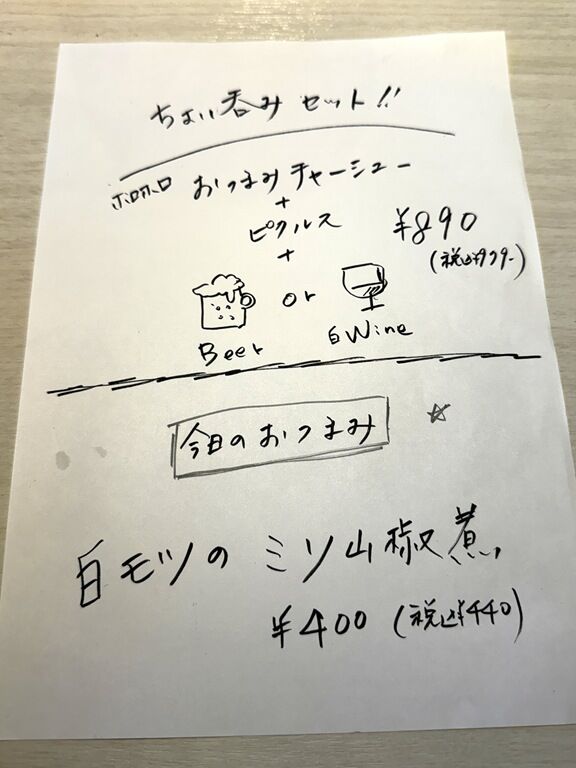 ちょい呑みセット!!
ホロホロ おつまみチャーシュー
+
ピクルス
+
¥890
(税込¥979-)
or
Beer
白Wine
今日のおつまみ
白モツのミソ山椒煮
¥400 (税込¥440)